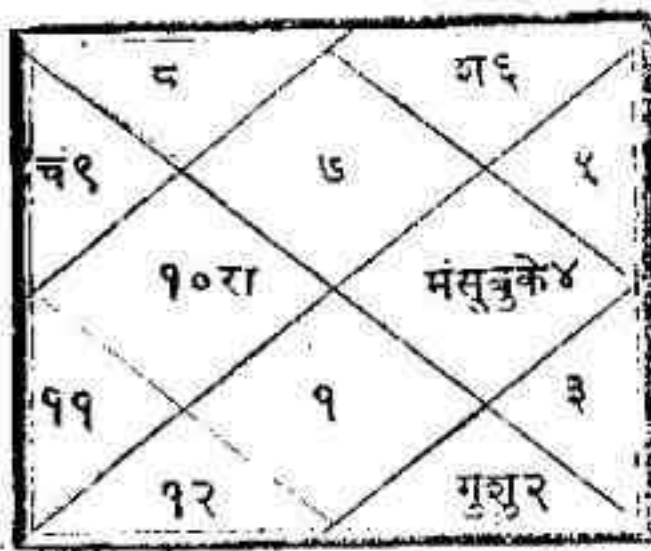 ८ श६
चं९ ७ ५
१०रा मंसूबुके४
११ १ ३
१२ गुशु२